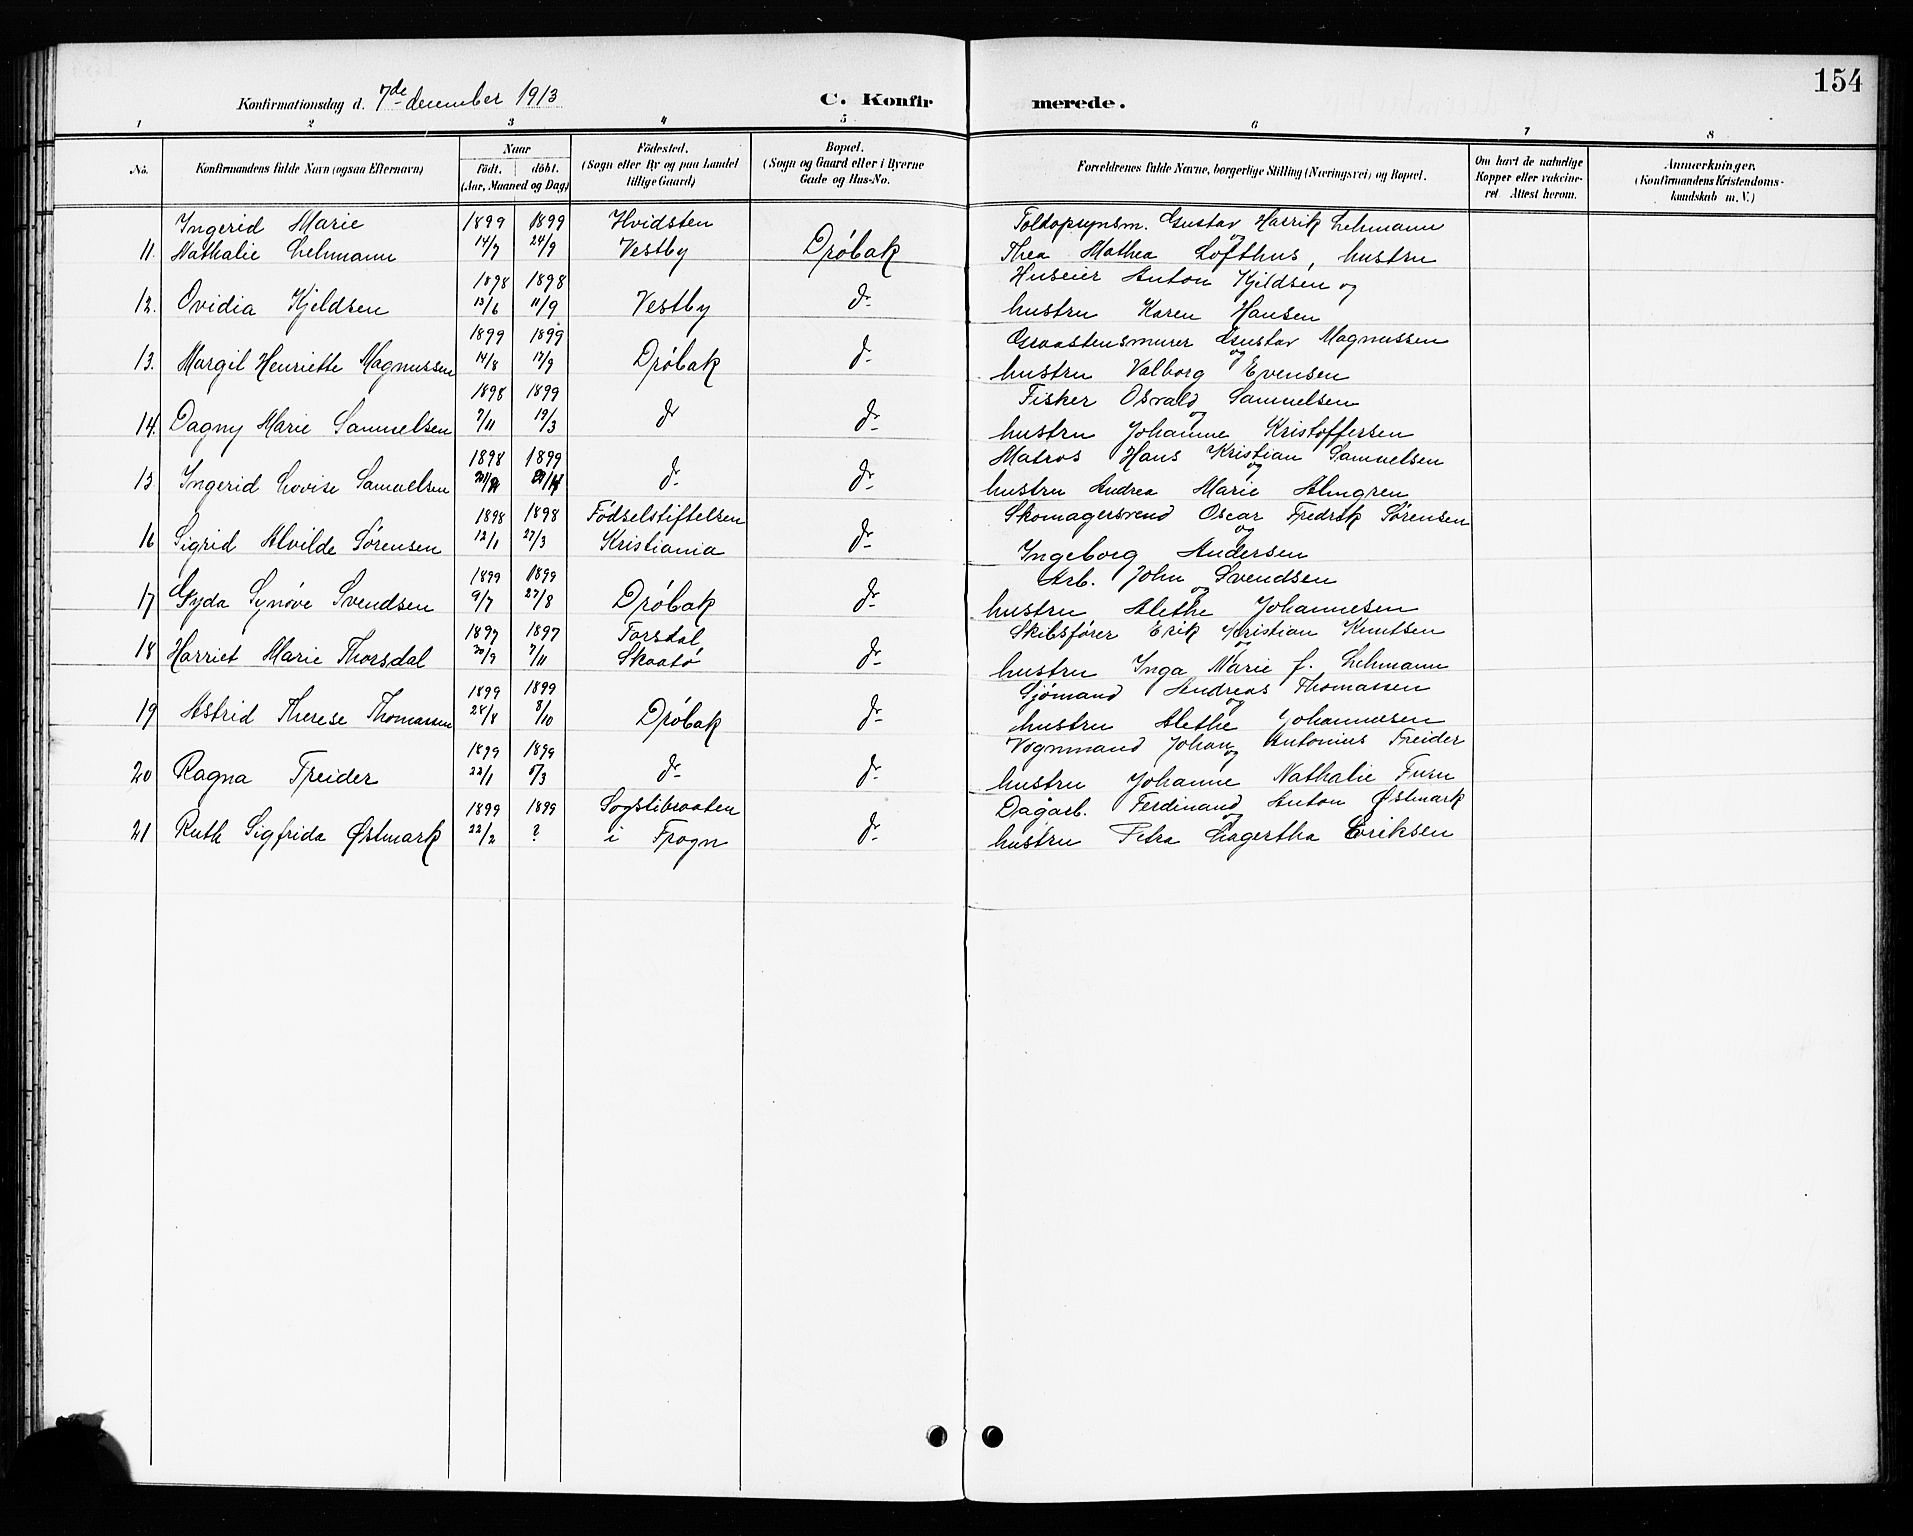 154
Konfirmationsdag d. 7de december 1913
C. Konfirmerede.
1 2 3 4 5 6 7 8
No. Konfirmandens fulde Navn (ogsaa Efternavn) Naar født. døbt. (Aar, Maaned og Dag) Fødested. (Sogn eller By og paa Landet tillige Gaard) Bopæl. (Sogn og Gaard eller i Byerne Gade og Hus-No. Forældrenes fulde Navne, borgerlige Stilling (Næringsvei) og Bopæl. Om havt de naturlige Kopper eller vakcineret. Attest herom. Anmærkninger. (Konfirmandens Kristendomskundskab m. V.)
Ingerid Marie 1899 1899 Hvidsten Toldopsynsm. Gustav Harrik Lehmann og
11. Nathalie Lehmann 14/7 24/9 Vestby Drøbak Thea Mathea Lofthus, hustru
1898 1898 Huseier Anton Kjeldsen og
12. Ovidia Kjeldsen 13/6 11/9 Vestby do hustru Karen Hansen
1899 1899 Graastensmurer Gustav Magnussen og
13. Margit Henriette Magnussen 14/8 17/9 Drøbak do hustru Valborg Evensen
1898 1899 Fisker Osvald Samuelsen og
14. Dagny Marie Samuelsen 7/11 19/3 do do hustru Johanne Kristoffersen
1898 1899 Matros Hans Kristian Samuelsen og
15 Ingerid Lovise Samuelsen do do hustru Andrea Marie Almgren
1898 1898 Fødselstiftelsen Skomagersvend Oscar Fredrik Sørensen og
16 Sigrid Alvilde Sørensen 12/1 27/3 Kristiania do Ingeborg Andersen
1899 1899 Arb. John Svendsen og
17 Gyda Synøve Svendsen 9/7 27/8 Drøbak do hustru Alethe Johannesen
1897 1897 Torsdal Skibsfører Erik Kristian Knutsen og
18 Harriet Marie Thorsdal 20/9 7/11 Skaatø do hustru Inga Marie f. Lehmann
1899 1899 Sjømand Andreas Thomassen og
19 Astrid Therese Thomassen 28/8 8/10 Drøbak do hustru Alethe Johannesen
1899 1899 Vognmand Johan Antonius Treider og
20 Ragna Treider 22/1 5/3 do do hustru Johanne Nathalie Furu
1899 1899 Sogstibraaten Dagarb. Ferdinand Anton Østmark og
21 Ruth Sigfrida Østmark 22/2 ? i Frogn do hustru Petra Hagertha Eriksen